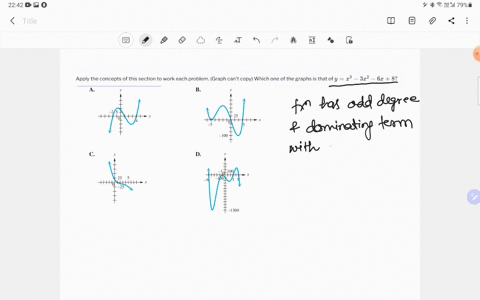 22:42
79%
Title
Apply the concepts of this section to work each problem. (Graph can't copy) Which one of the graphs is that of y = x³ − 3x² − 6x + 8?
A.
B.
fxn has odd degree
& dominating term
with
C.
D.